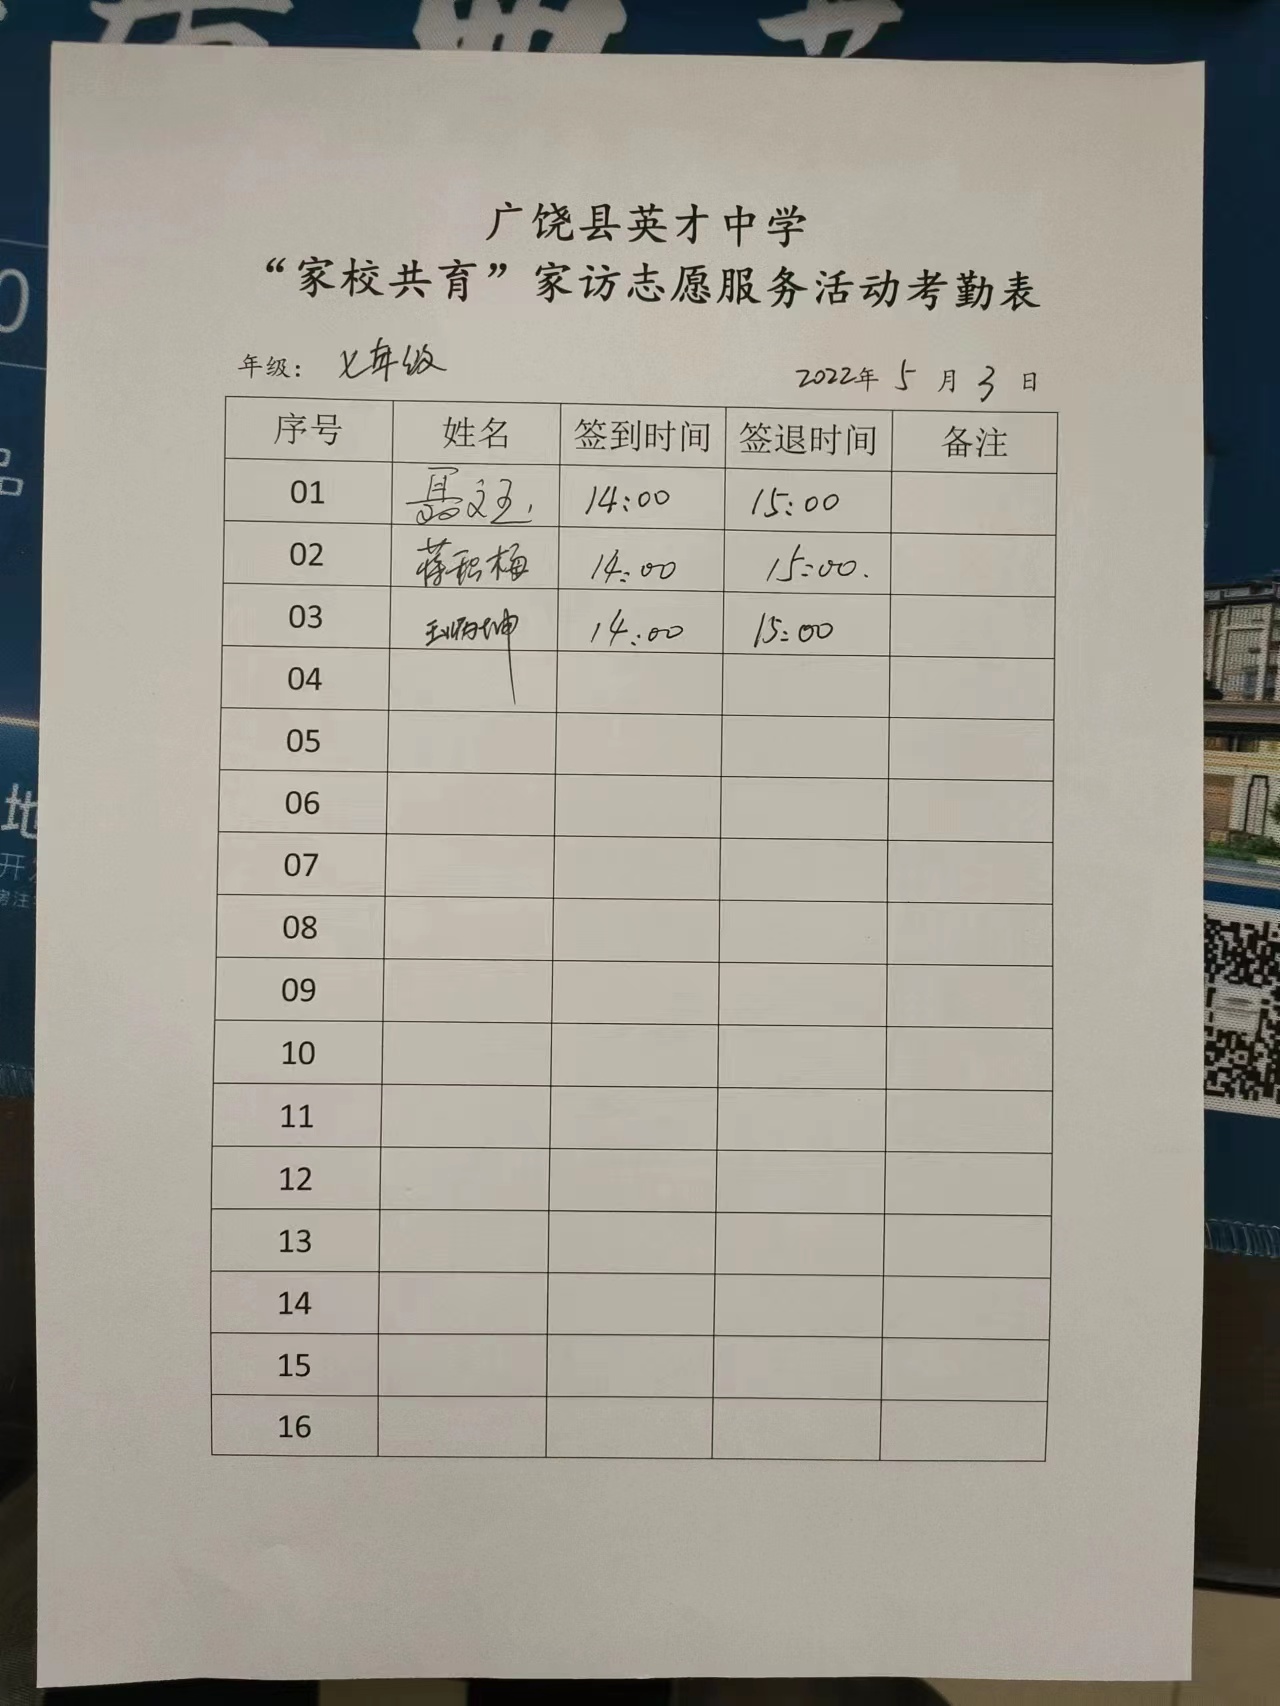 广饶县英才中学
“家校共育”家访志愿服务活动考勤表
年级： 七年级 2022年 5 月 3 日
序号 姓名 签到时间 签退时间 备注
01 14:00 15:00
02 蒋积梅 14:00 15:00.
03 王炳坤 14:00 15:00
04
05
06
07
08
09
10
11
12
13
14
15
16
品
地